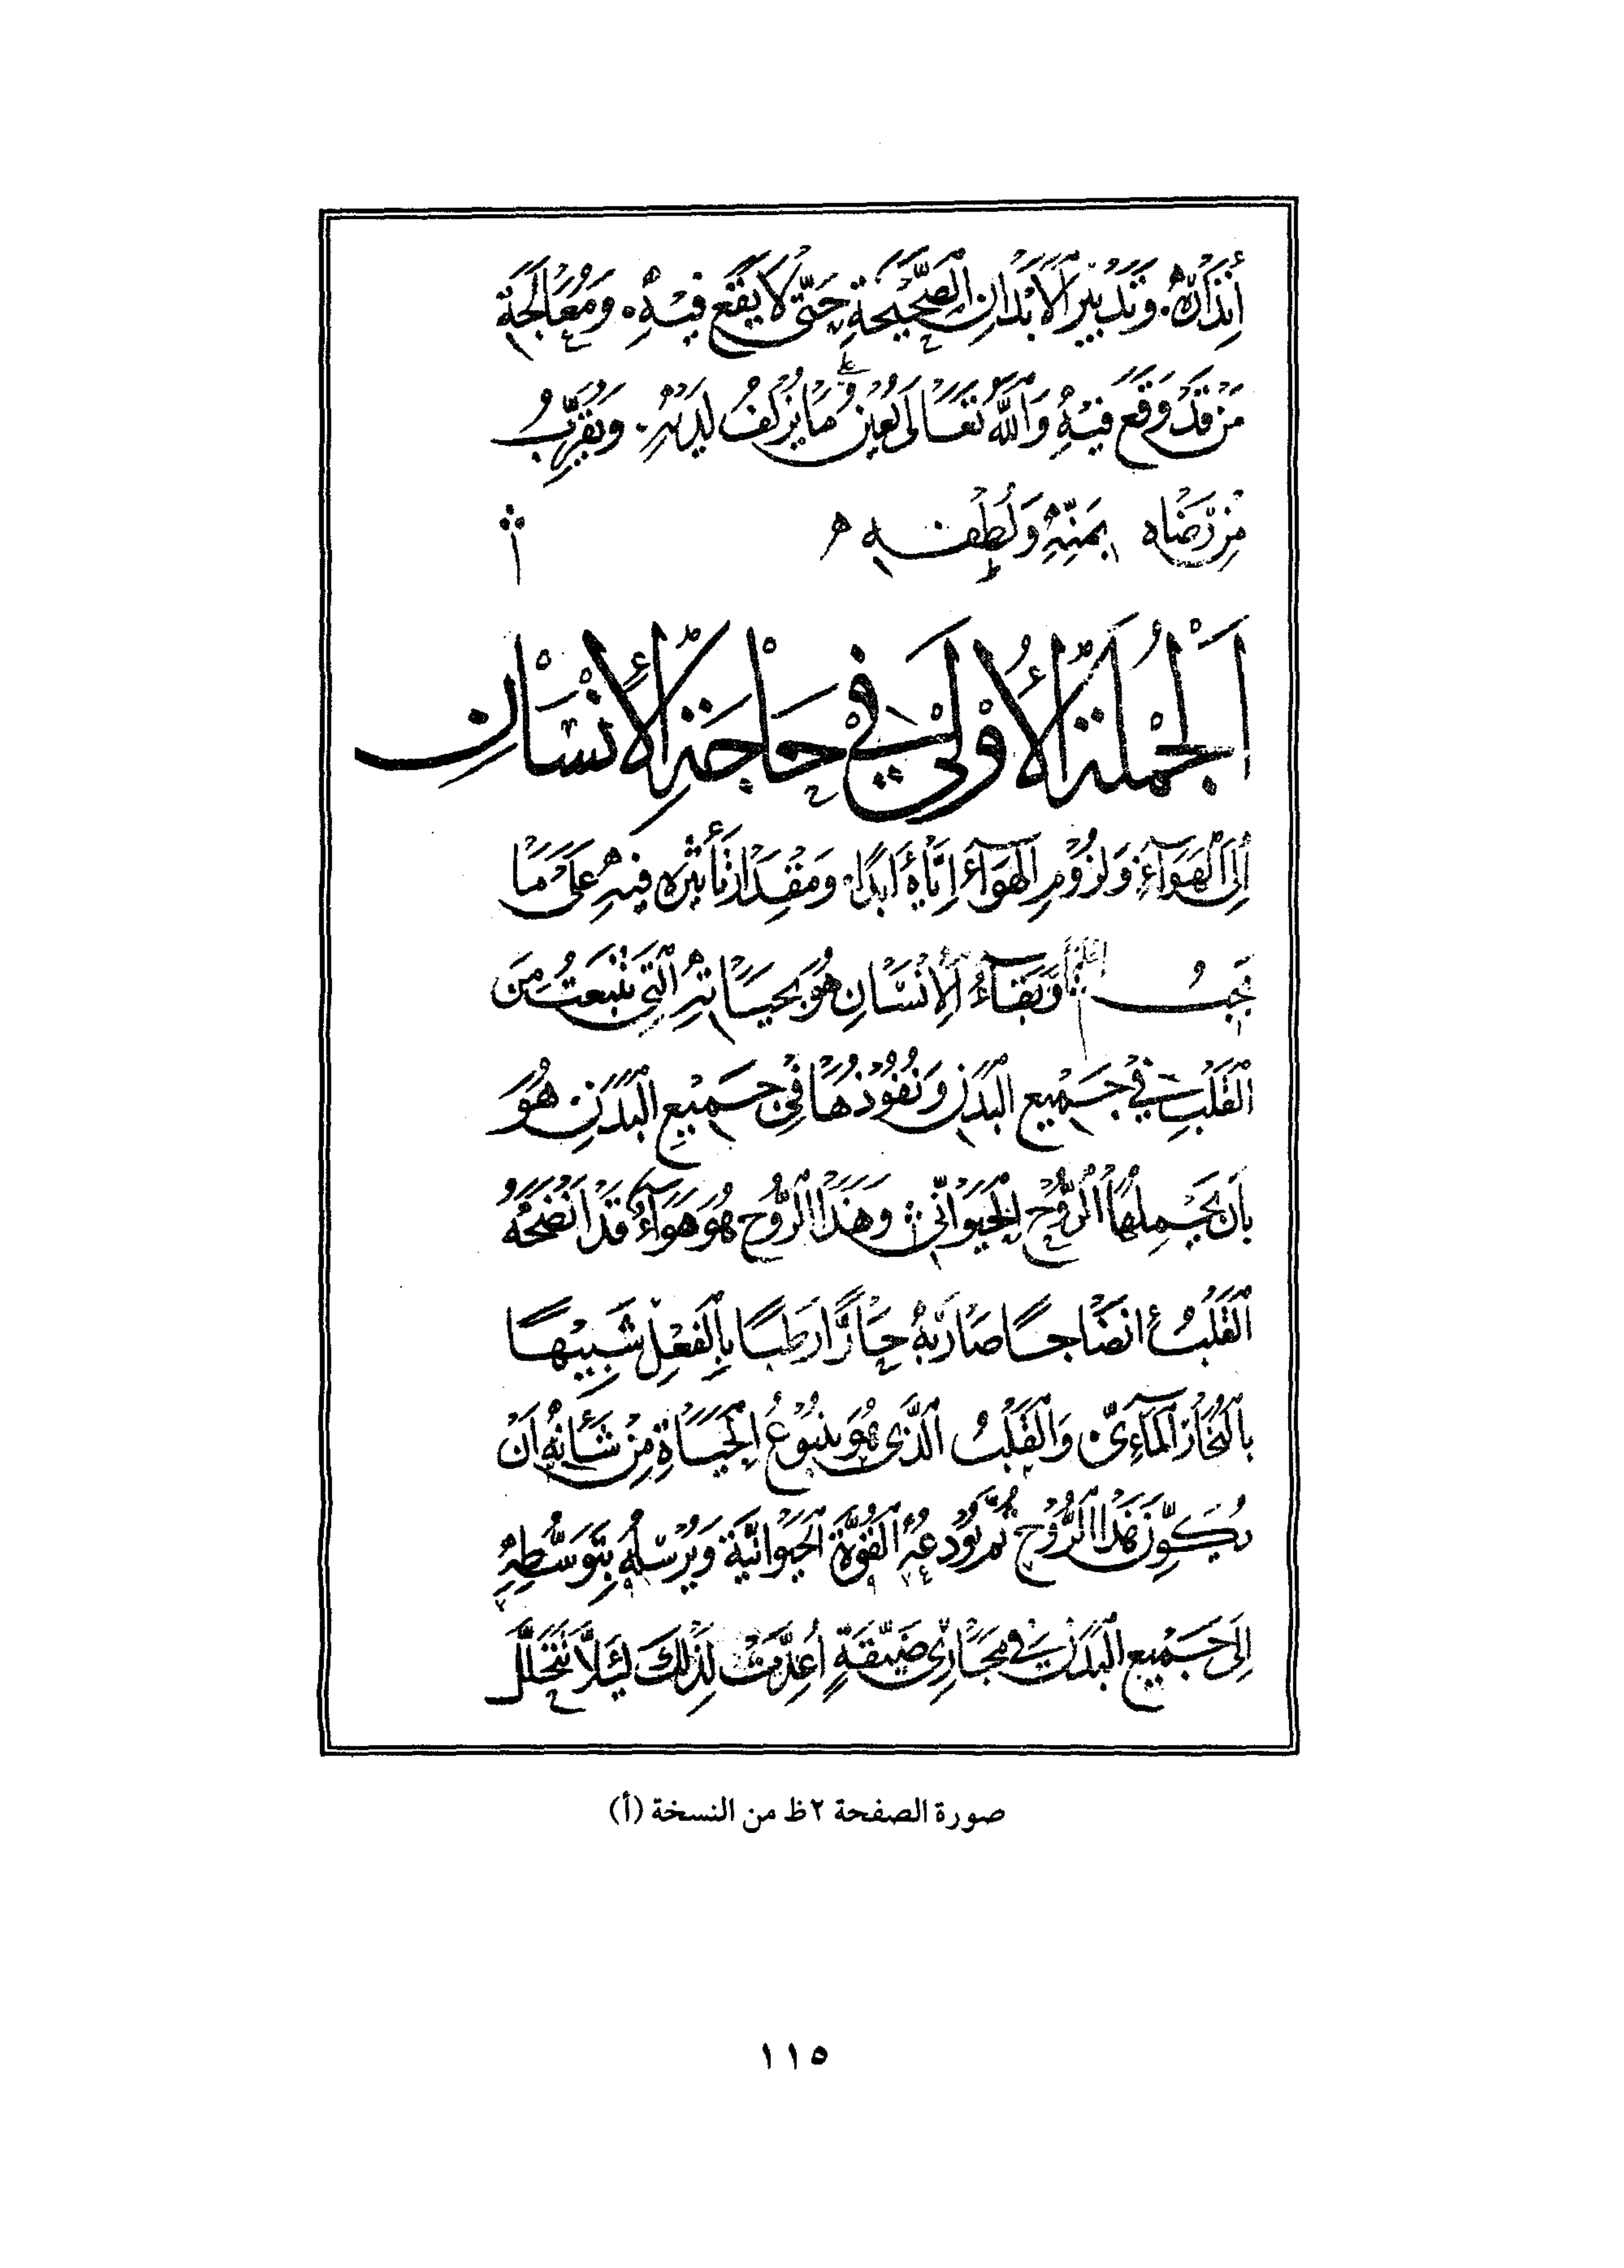 أُنذَارُهُ. وَتَدْبِيْرُ الْأَبْدَانِ الصَّحِيْحَةِ حَتَّى لَا يَقَعَ فِيْهِ. وَمُعَالَجَةُ
مَنْ قَدْ وَقَعَ فِيْهِ وَاللهُ تَعَالَى يُعِيْنُ عَلَى مَا يُزْلِفُ لَدَيْهِ. وَيُقَرِّبُ
مِنْ رَضَاه بِمَنِّهِ وَلُطْفِهِ
اَلْجُمْلَةُ الْأُوْلَى فِي حَاجَةِ الْأِنْسَانِ
اِلَى الْهَوَآءِ وَلُزُوْمِ الْهَوَآءِ اِيَّاهُ أَبَدًا. وَمِقْدَارُ تَأْثِيْرِهِ فِيْهِ عَلَى مَا
يَجِبُ وَبَقَآءُ الْاِنْسَانِ هُوَ بِحَيَاتِهِ الَّتِي تَنْبَعِثُ مِنَ
الْقَلْبِ فِي جَمِيْعِ الْبَدَنِ وَنُفُوْذُهَا فِيْ جَمِيْعِ الْبَدَنِ هُوَ
بِاَنْ يَحْمِلَهَا الرُّوْحُ الْحَيَوَانِيُّ وَهَذَا الرُّوْحُ هُوَ هَوَآءٌ قَدْ اَنْضَجَهُ
الْقَلْبُ انْضَاجًا صَارَ بِهِ حَارًّا رَطْبًا بِالْفِعْلِ شَبِيْهًا
بِالْبُخَارِ الْمَآءِيِّ وَالْقَلْبُ الَّذِي هُوَ يَنْبُوْعُ الْحَيَاةِ مِنْ شَأْنِهِ اَنْ
يُكَوِّنَ هَذَا الرُّوْحَ ثُمَّ يُوْدِعُهُ الْقُوَّةَ الْحَيَوَانِيَّةَ وَيُرْسِلُهُ بِتَوَسُّطِهِ
اِلَى جَمِيْعِ الْبَدَنِ فِي مَجَارِيْ ضَيِّقَةٍ اُعِدَّتْ لِذَلِكَ لِئَلَّا تَتَحَلَّلَ
صورة الصفحة ٢ظ من النسخة (أ)
١١٥